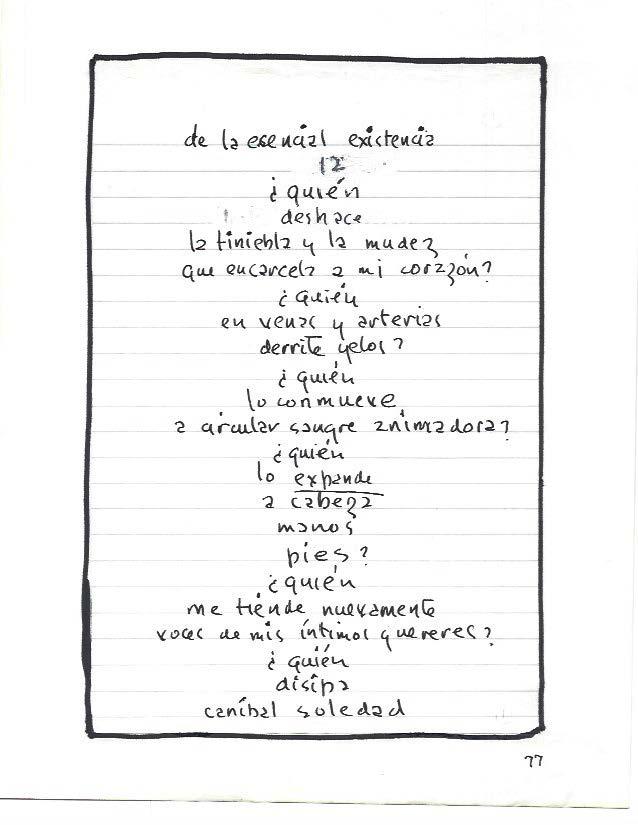 de la esencial existencia
12
¿quién
deshace
la tiniebla y la mudez
que encarcela a mi corazón?
¿quién
en venas y arterias
derrite yelos?
¿quién
lo conmueve
a circular sangre animadora?
¿quién
lo expande
a cabeza
manos
pies?
¿quién
me tiende nuevamente
voces de mis íntimos quereres?
¿quién
disipa
caníbal soledad
77